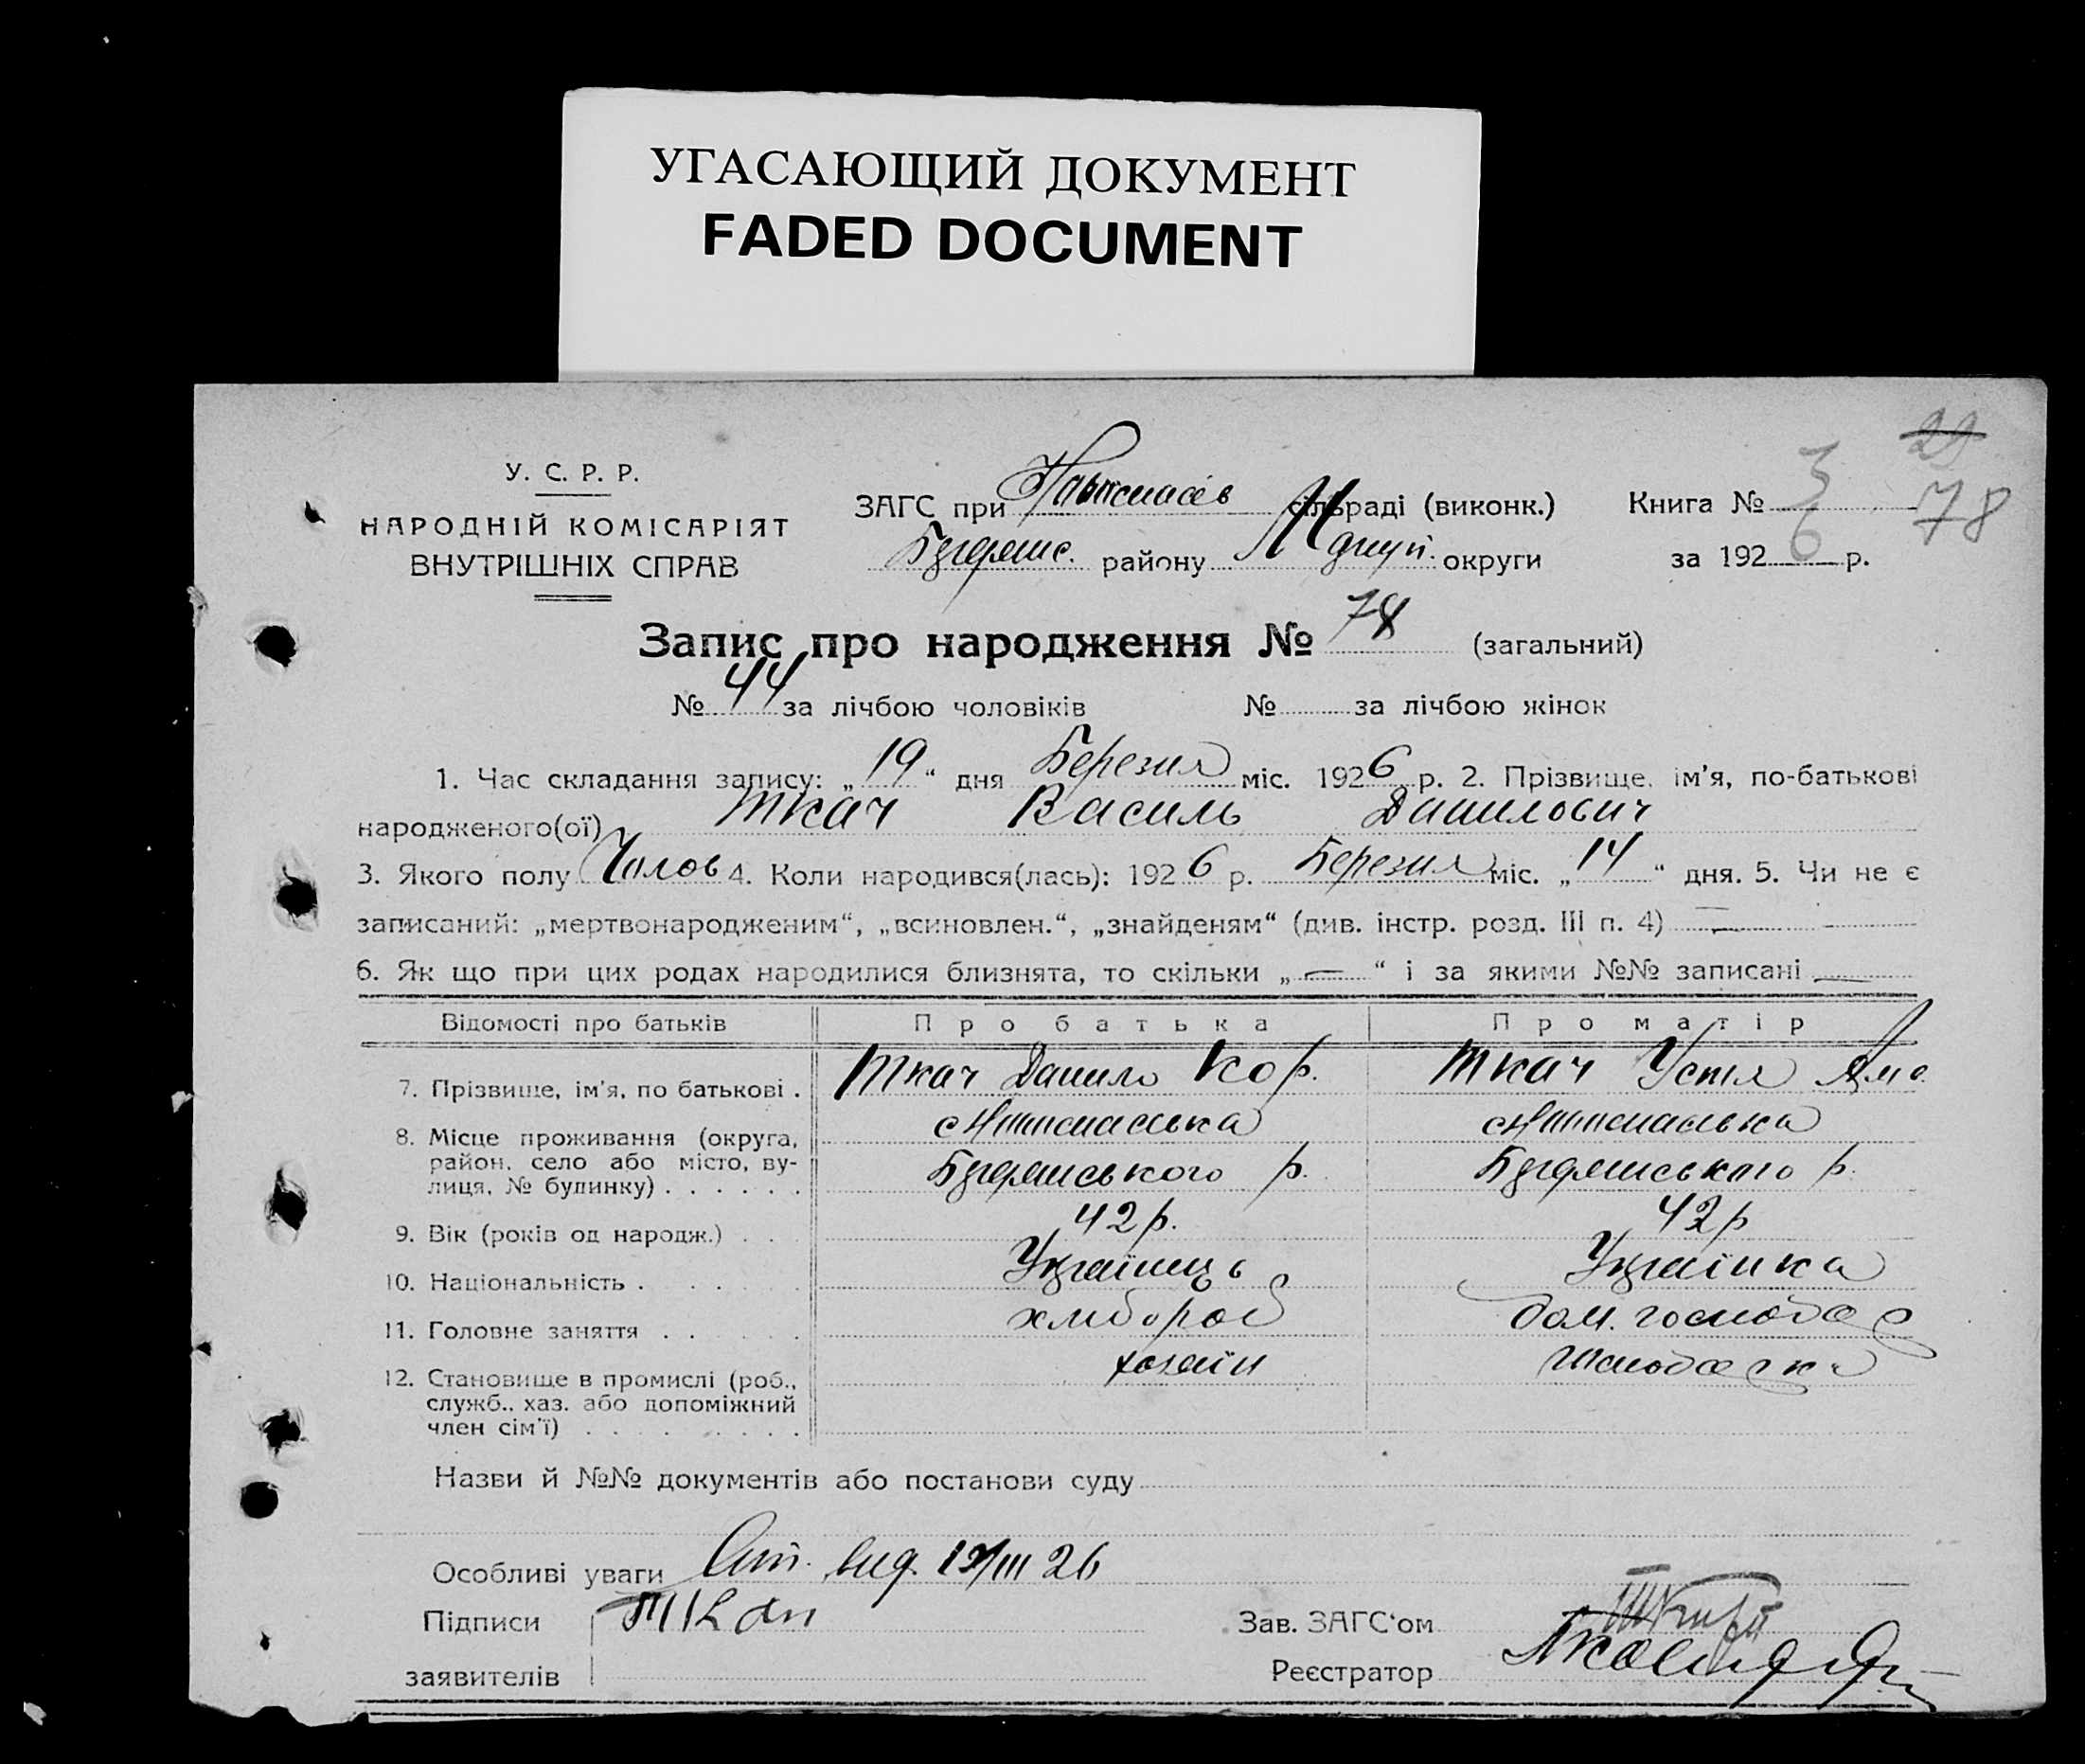 УГАСАЮЩИЙ ДОКУМЕНТ
FADED DOCUMENT
29
78
У. С. Р. Р.
НАРОДНІЙ КОМІСАРІЯТ
ВНУТРІШНІХ СПРАВ
ЗАГС при сільраді (виконк.)
району округи
Книга № 3
за 1926 р.
Запис про народження № 78 (загальний)
№ 44 за лічбою чоловіків № за лічбою жінок
1. Час складання запису: „19“ дня Березня міс. 1926 р. 2. Прізвище, ім'я, по-батькові
народженого(ої) Ткач Василь Данилович
3. Якого полу Чолов 4. Коли народився(лась): 1926 р. Березня міс. „14“ дня. 5. Чи не є
записаний: „мертвонародженим“, „всиновлен.“, „знайденям“ (див. інстр. розд. III п. 4) —
6. Як що при цих родах народилися близнята, то скільки „—“ і за якими №№ записані —
Відомості про батьків Про батька Про матір
7. Прізвище, ім'я, по батькові . Ткач Данило Кор. Ткач Устя
8. Місце проживання (округа,
район, село або місто, ву-
лиця, № будинку) . . . . . . р. р.
9. Вік (років од народж.) . . . 42 р. 42 р
10. Національність . . . . . Українець Українка
11. Головне заняття . . . . . хлібороб дом. господар
12. Становище в промислі (роб., хозяїн
служб., хаз. або допоміжний
член сім'ї) . . . . . . . . .
Назви й №№ документів або постанови суду
Особливі уваги вид. 19/III 26
Підписи Ткач
заявителів
Зав. ЗАГС'ом
Реєстратор